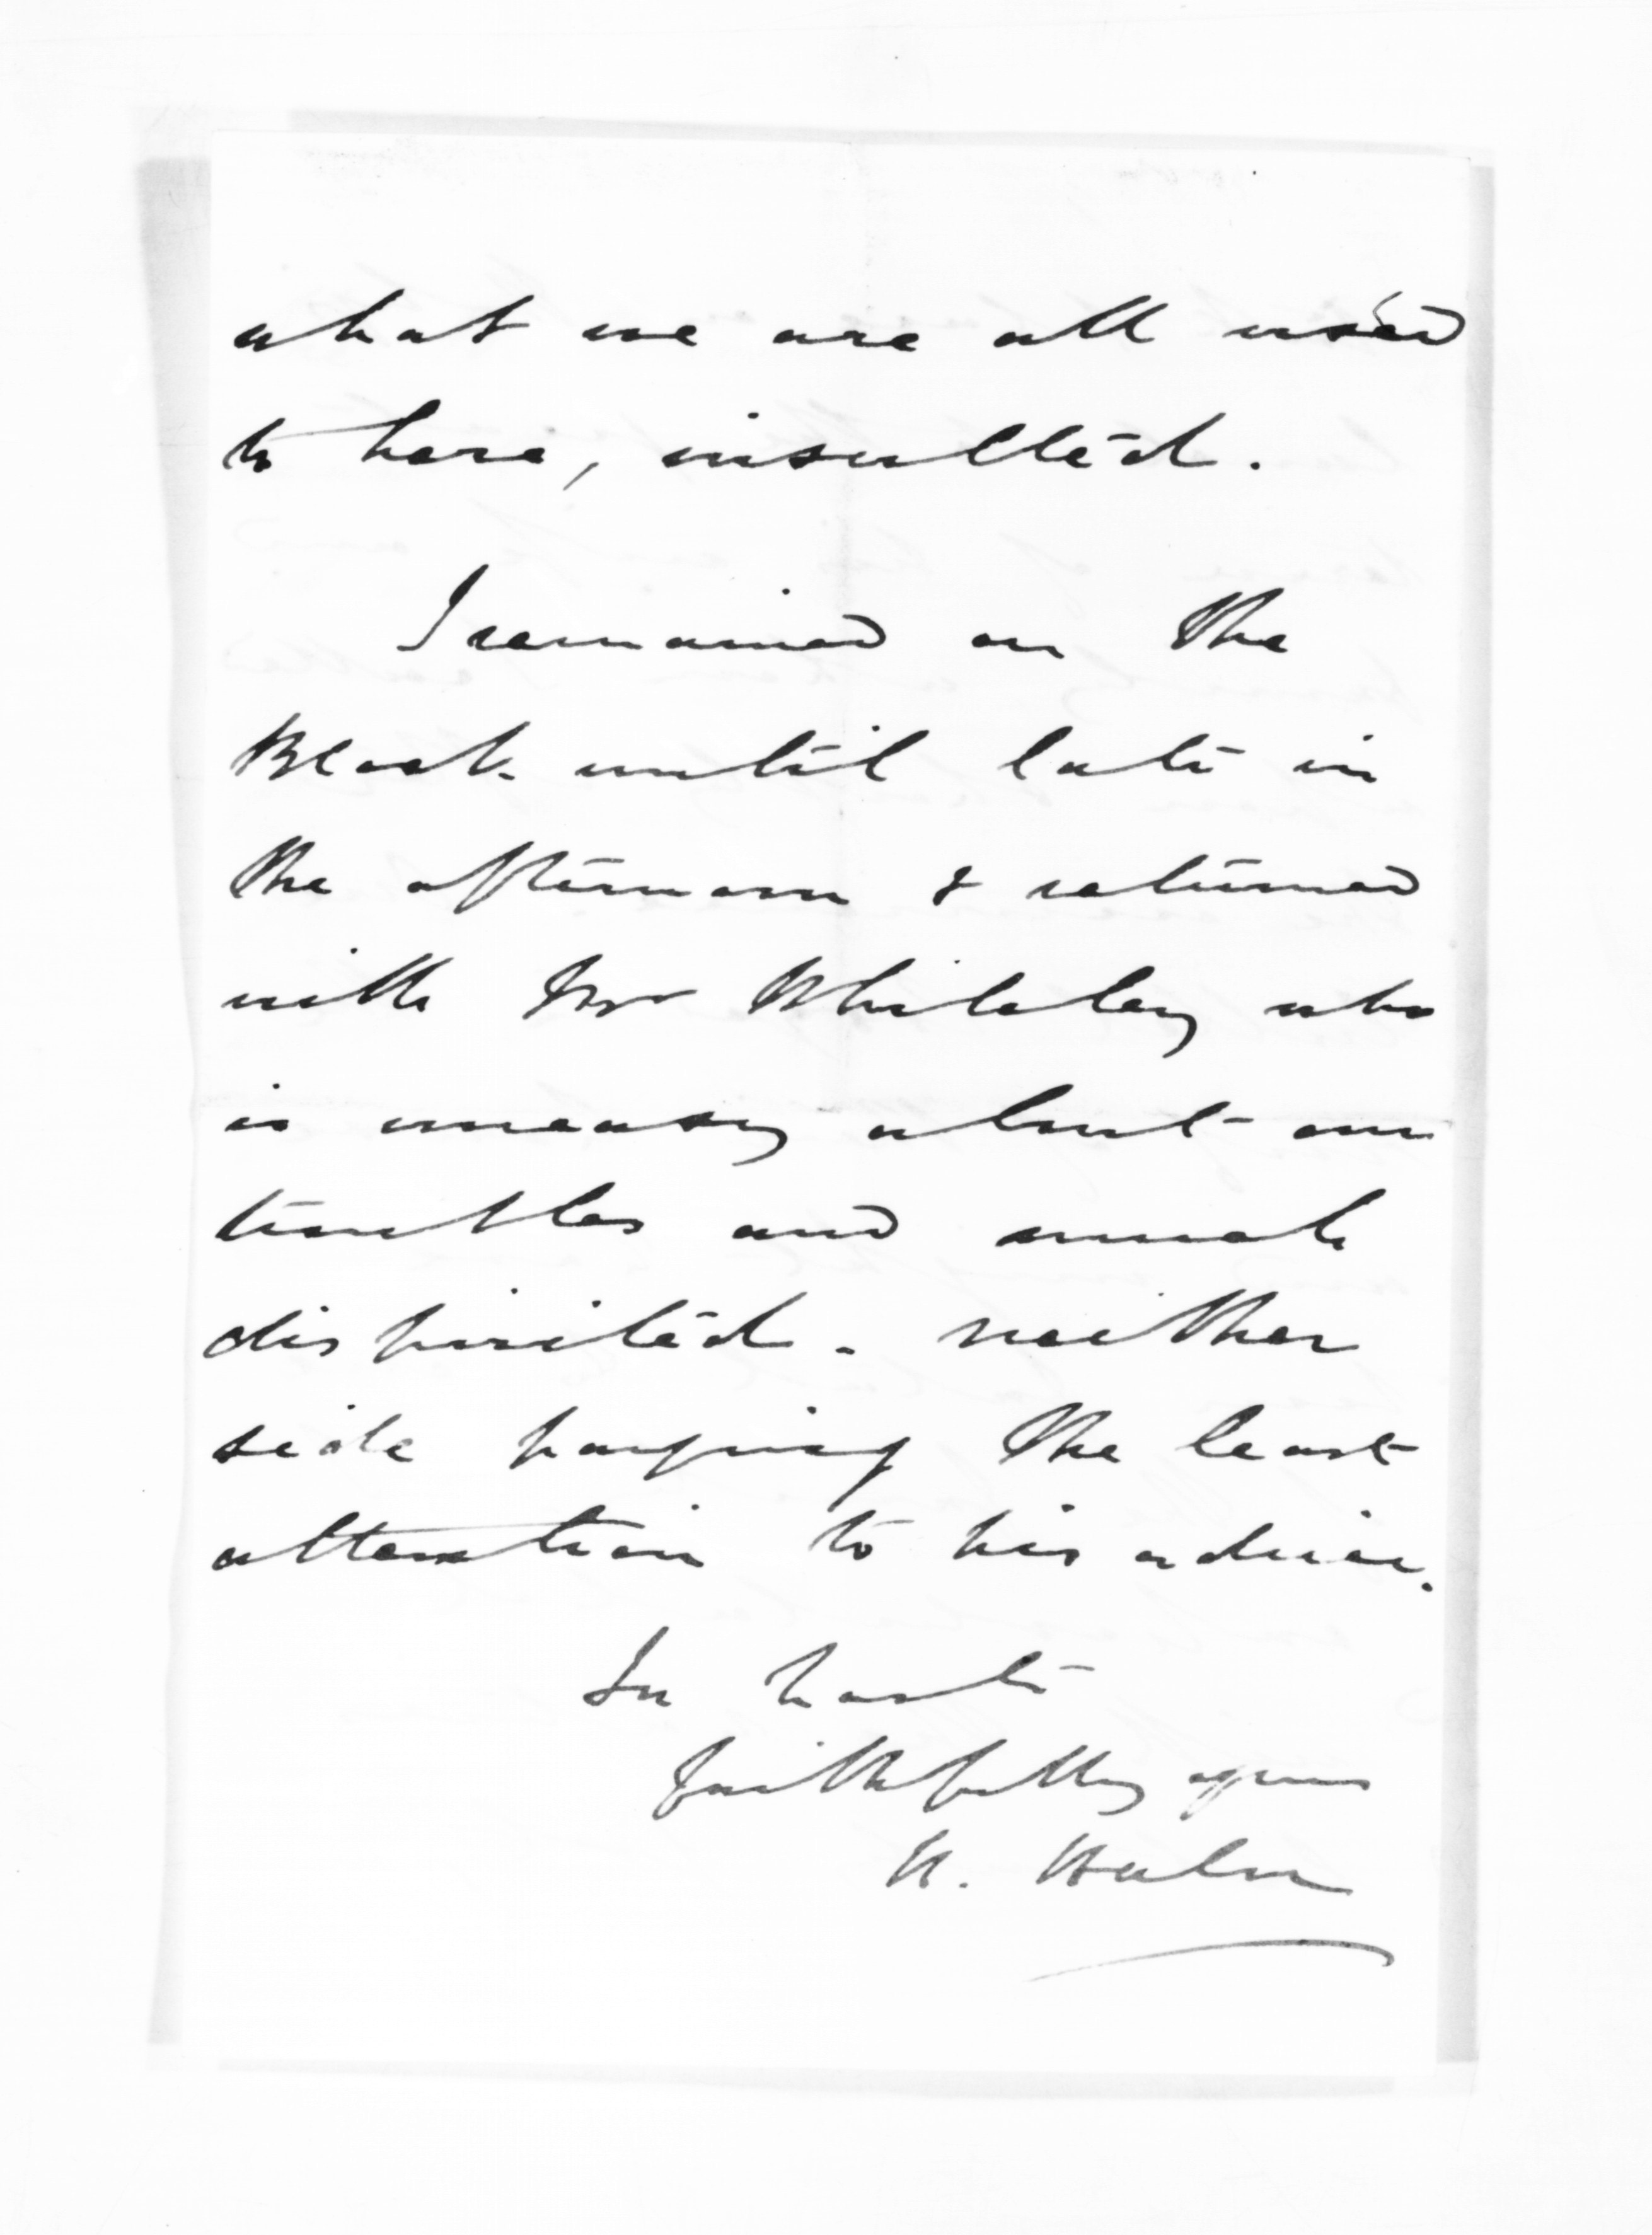 what we are all used
to here, insulted.
I remained on the
Block until late in
the afternoon & returned
with Mr Whiteley who
is uneasy about our
troubles and much
dispirited. neither
side paying the least
attention to his advice.
In haste
faithfully yours
H. Halse